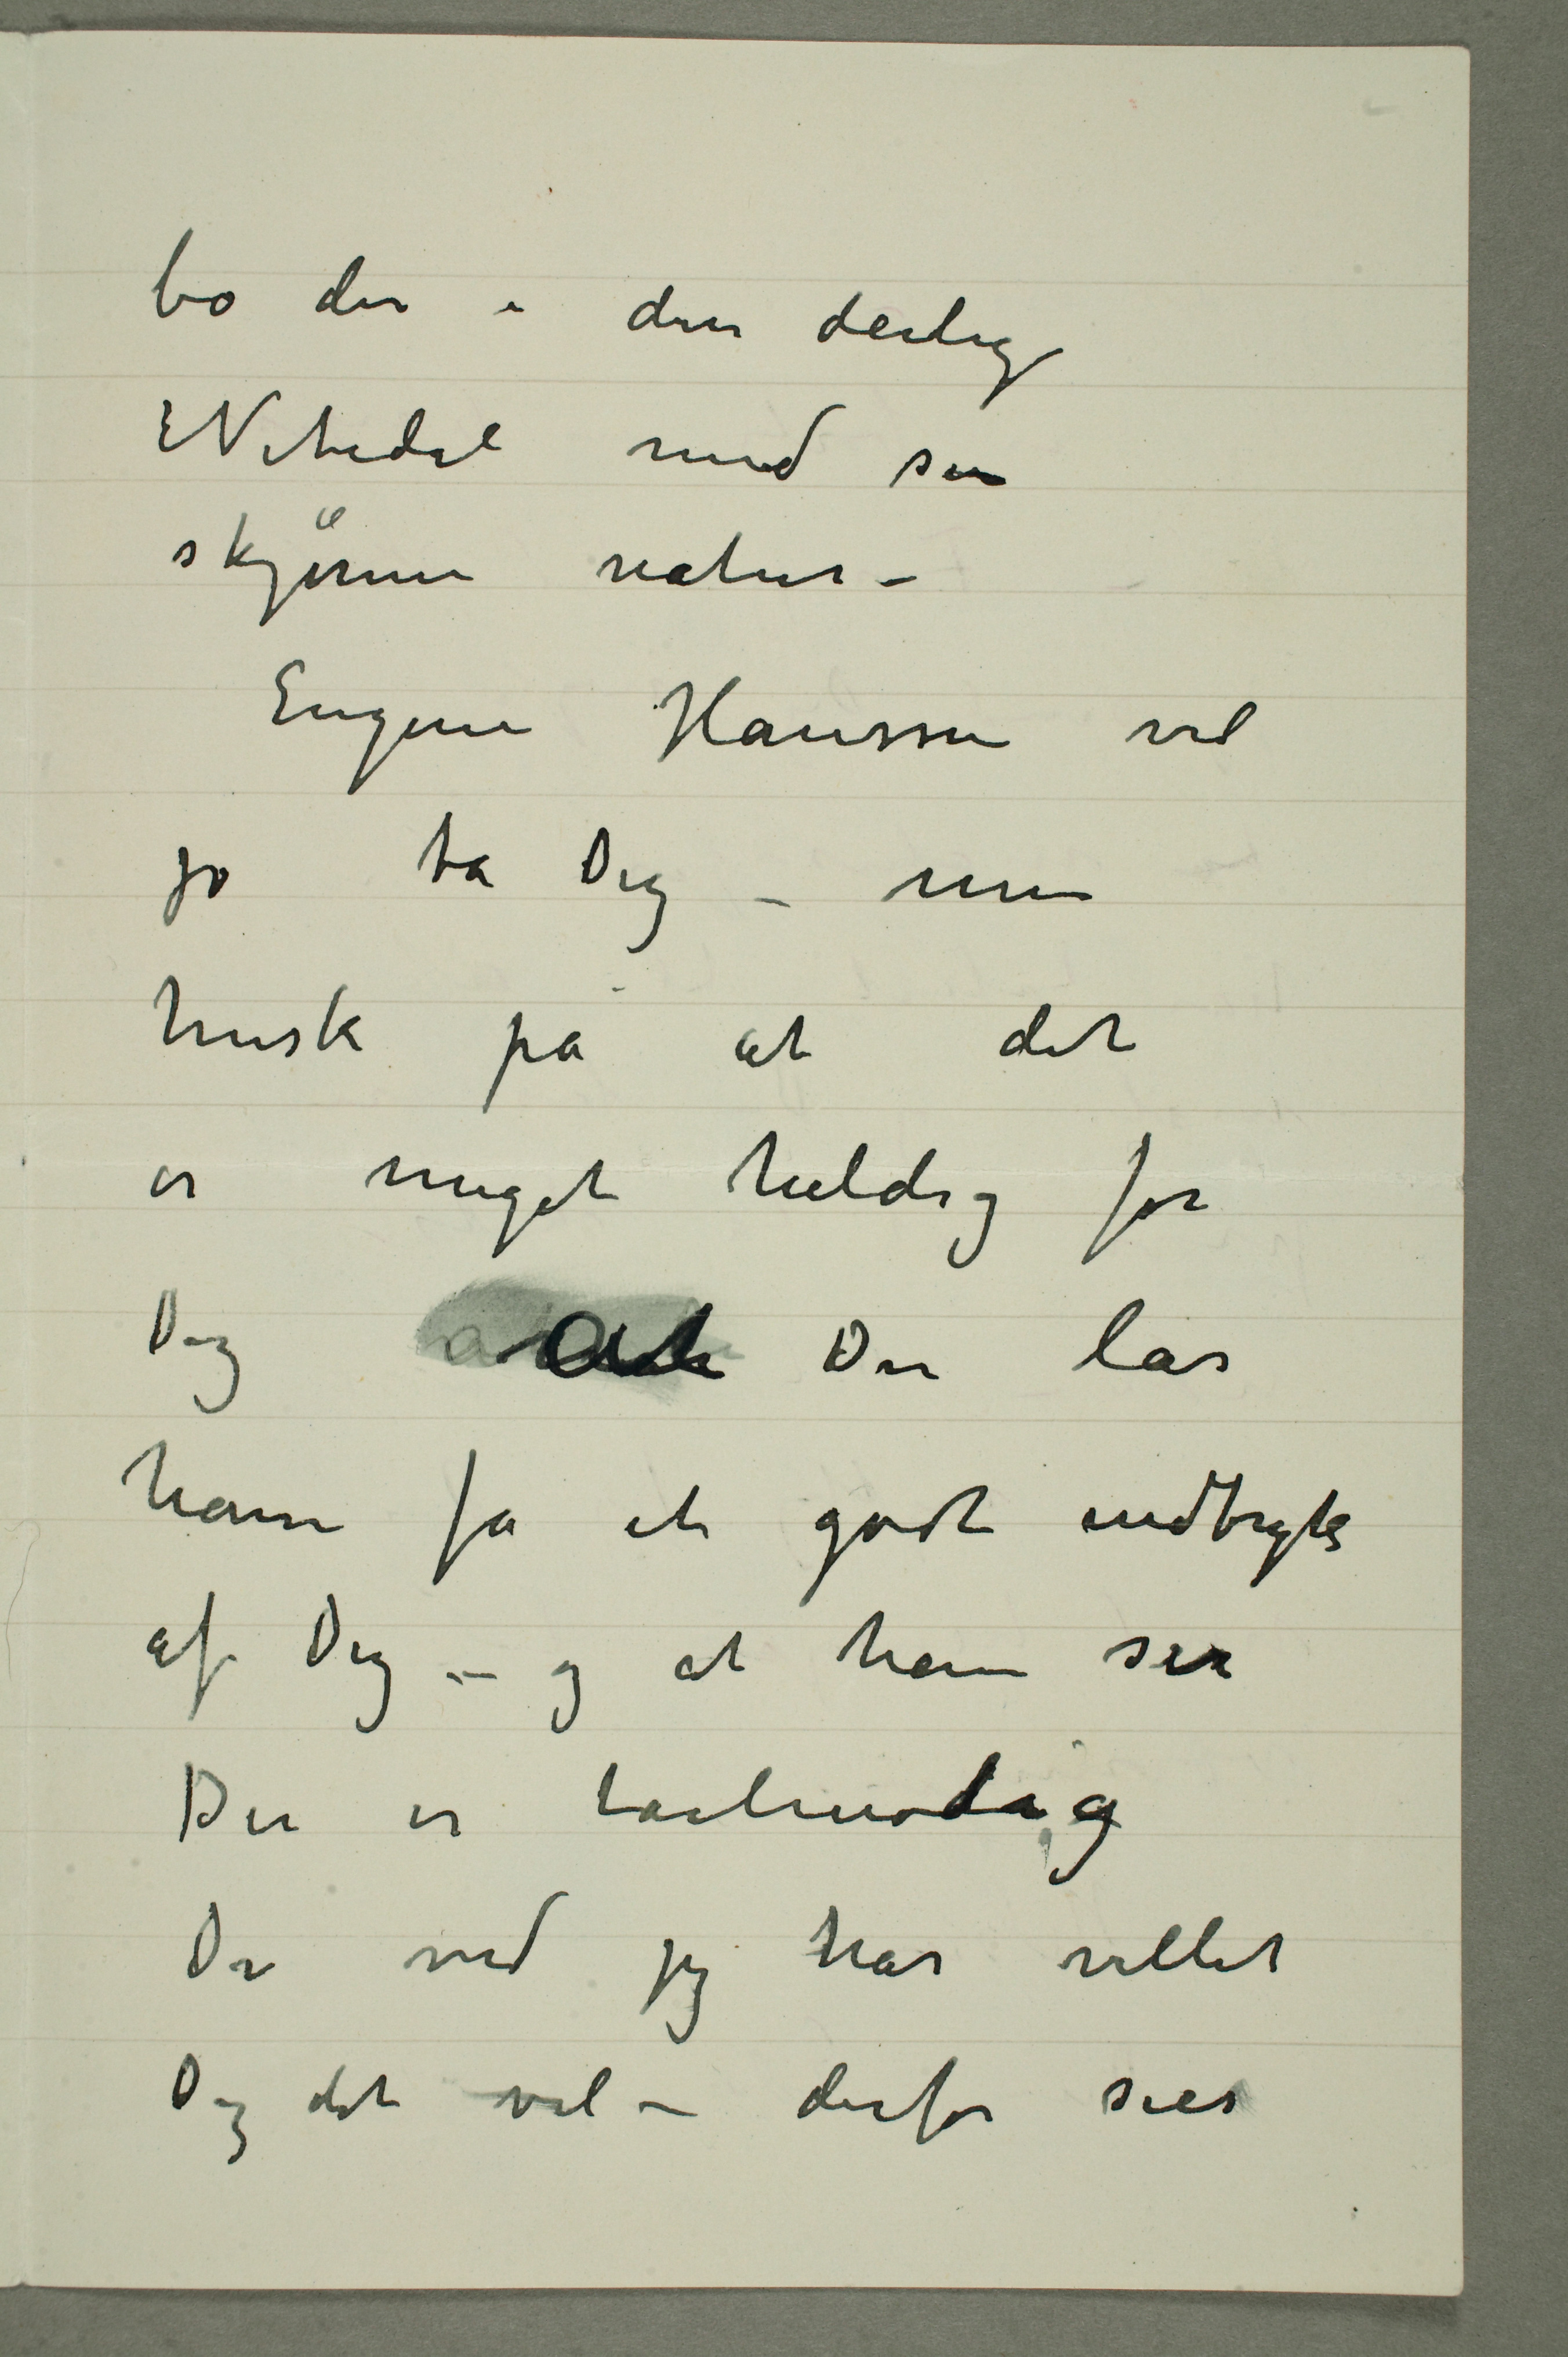 bo der i den deilige
Nitedal med sin
skjønne natur –
Eugene Hanssen vil
jo ta Dig – men
husk på at det
er meget heldig for
Dig at Du lar
ham få et godt indtryk
af Dig – og at han ser
Du er taalmodig
Du ved jeg har villet
Dig det vel – derfor sier